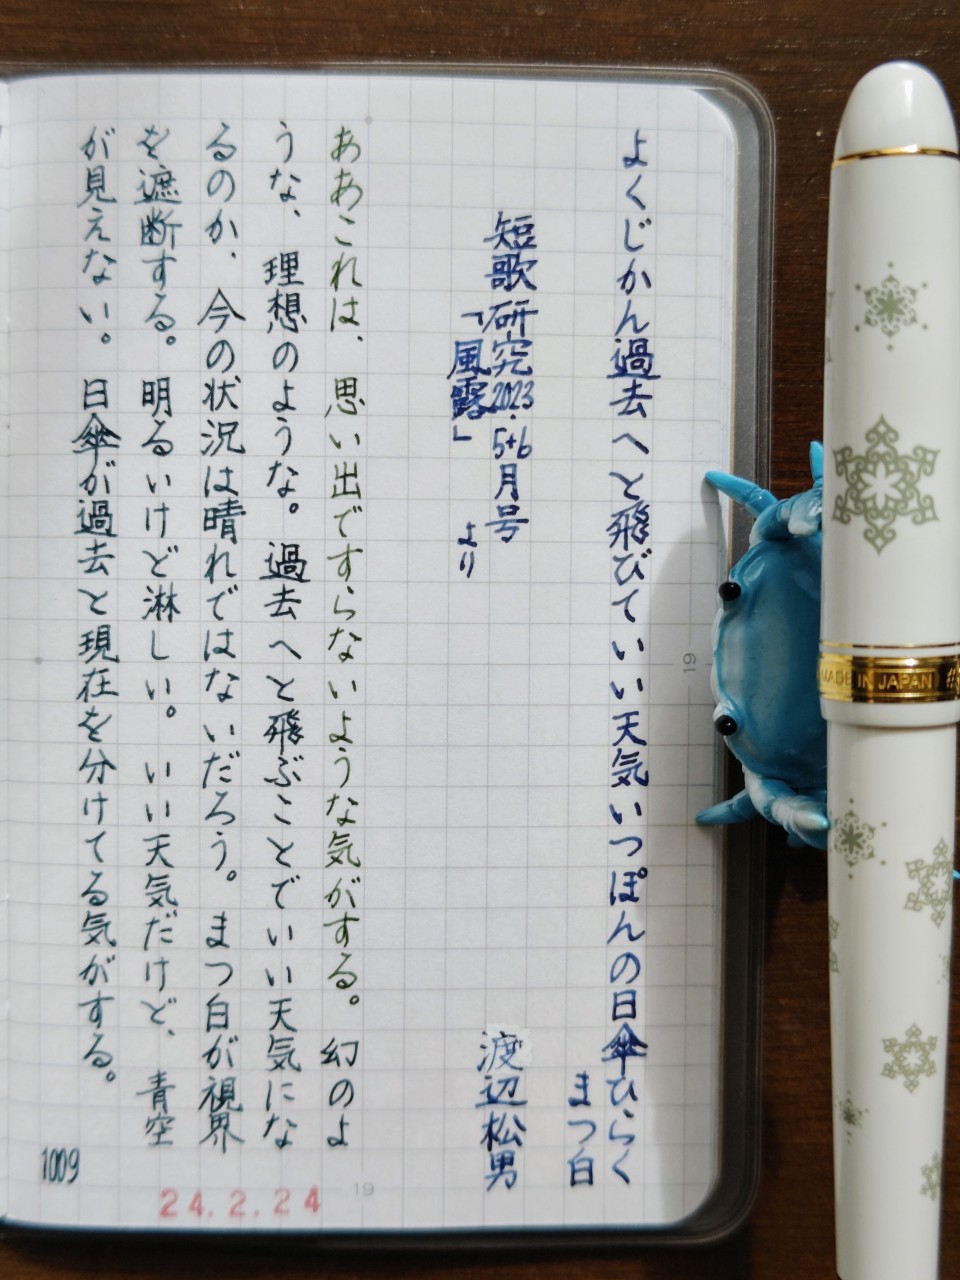 よくじかん過去へと飛びていい天気いつぽんの日傘ひらく
まつ白
短歌研究2023.5+6月号
「風露」 より
渡辺松男
ああこれは、思い出ですらないような気がする。幻のよ
うな、理想のような。過去へと飛ぶことでいい天気にな
るのか、今の状況は晴れではないだろう。まつ白が視界
を遮断する。明るいけど淋しい。いい天気だけど、青空
が見えない。日傘が過去と現在を分けてる気がする。
1009
24.2.24
19
19
MADE IN JAPAN